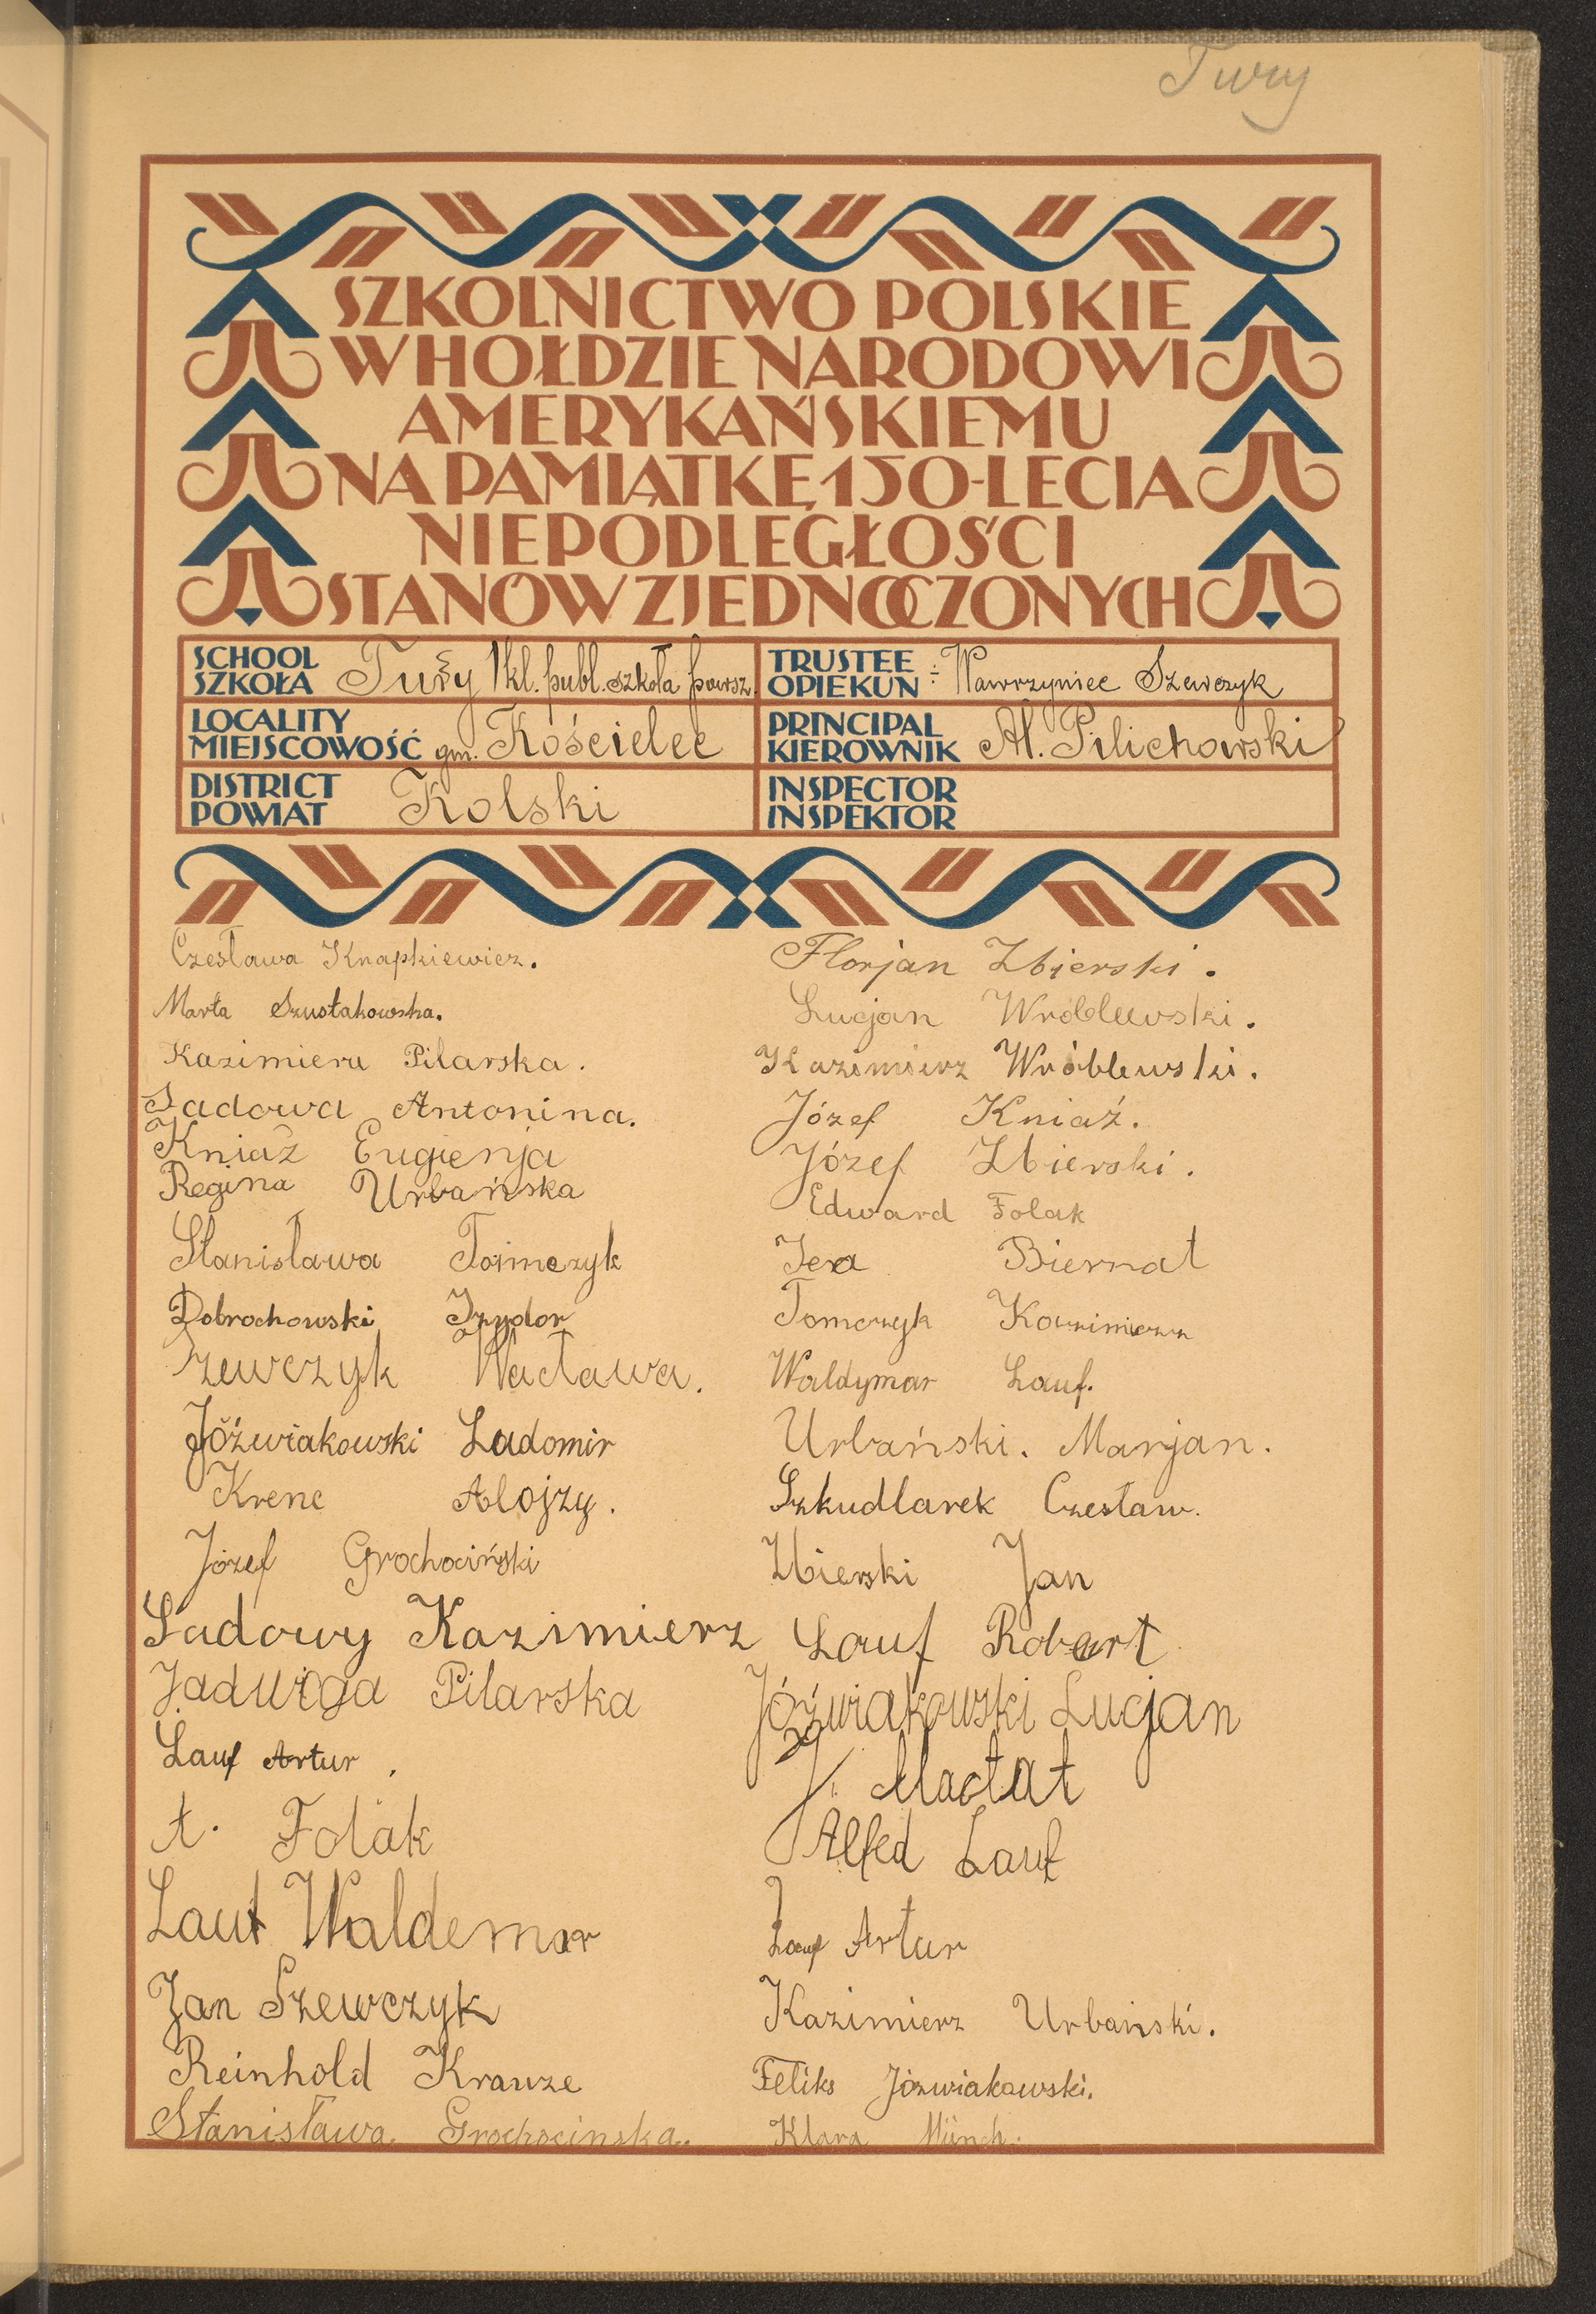 Tury
SZKOLNICTWO POLSKIE
W HOŁDZIE NARODOWI
AMERYKAŃSKIEMU
NA PAMIĄTKĘ 150-LECIA
NIEPODLEGŁOŚCI
STANÓW ZJEDNOCZONYCH
SCHOOL
SZKOŁA Tury 1 kl. publ. szkoła powsz.
TRUSTEE
OPIEKUN Wawrzyniec Szewczyk
LOCALITY
MIEJSCOWOŚĆ gm. Kościelec
PRINCIPAL
KIEROWNIK Al. Pilichowski
DISTRICT
POWIAT Kolski
INSPECTOR
INSPEKTOR
Czesława Knapkiewicz.
Marta Szustakowska.
Kazimiera Pilarska.
Sadowa Antonina.
Kniaź Eugienja
Regina Urbańska
Stanisława Tomczyk
Dobrochowski Izydor
Szewczyk Wacława.
Jóźwiakowski Ladomir
Krenc Alojzy.
Józef Grochociński
Sadowy Kazimierz
Jadwiga Pilarska
Lauf Artur.
A. Folak
Lauf Waldemar
Jan Szewczyk
Reinhold Krauze
Stanisława Grochocinska.
Florjan Zbierski.
Lucjan Wróblewski.
Kazimierz Wróblewski.
Józef Kniaź.
Józef Zbierski.
Edward Folak
Biernat
Tomczyk Kazimierz
Waldymar Lauf.
Urbański. Marjan.
Szkudlarek Czesław.
Zbierski Jan
Lauf Robert
Jóźwiakowski Lucjan
J.
Alfed Lauf
Lauf Artur
Kazimierz Urbański.
Feliks Józwiakawski.
Klara Münch.